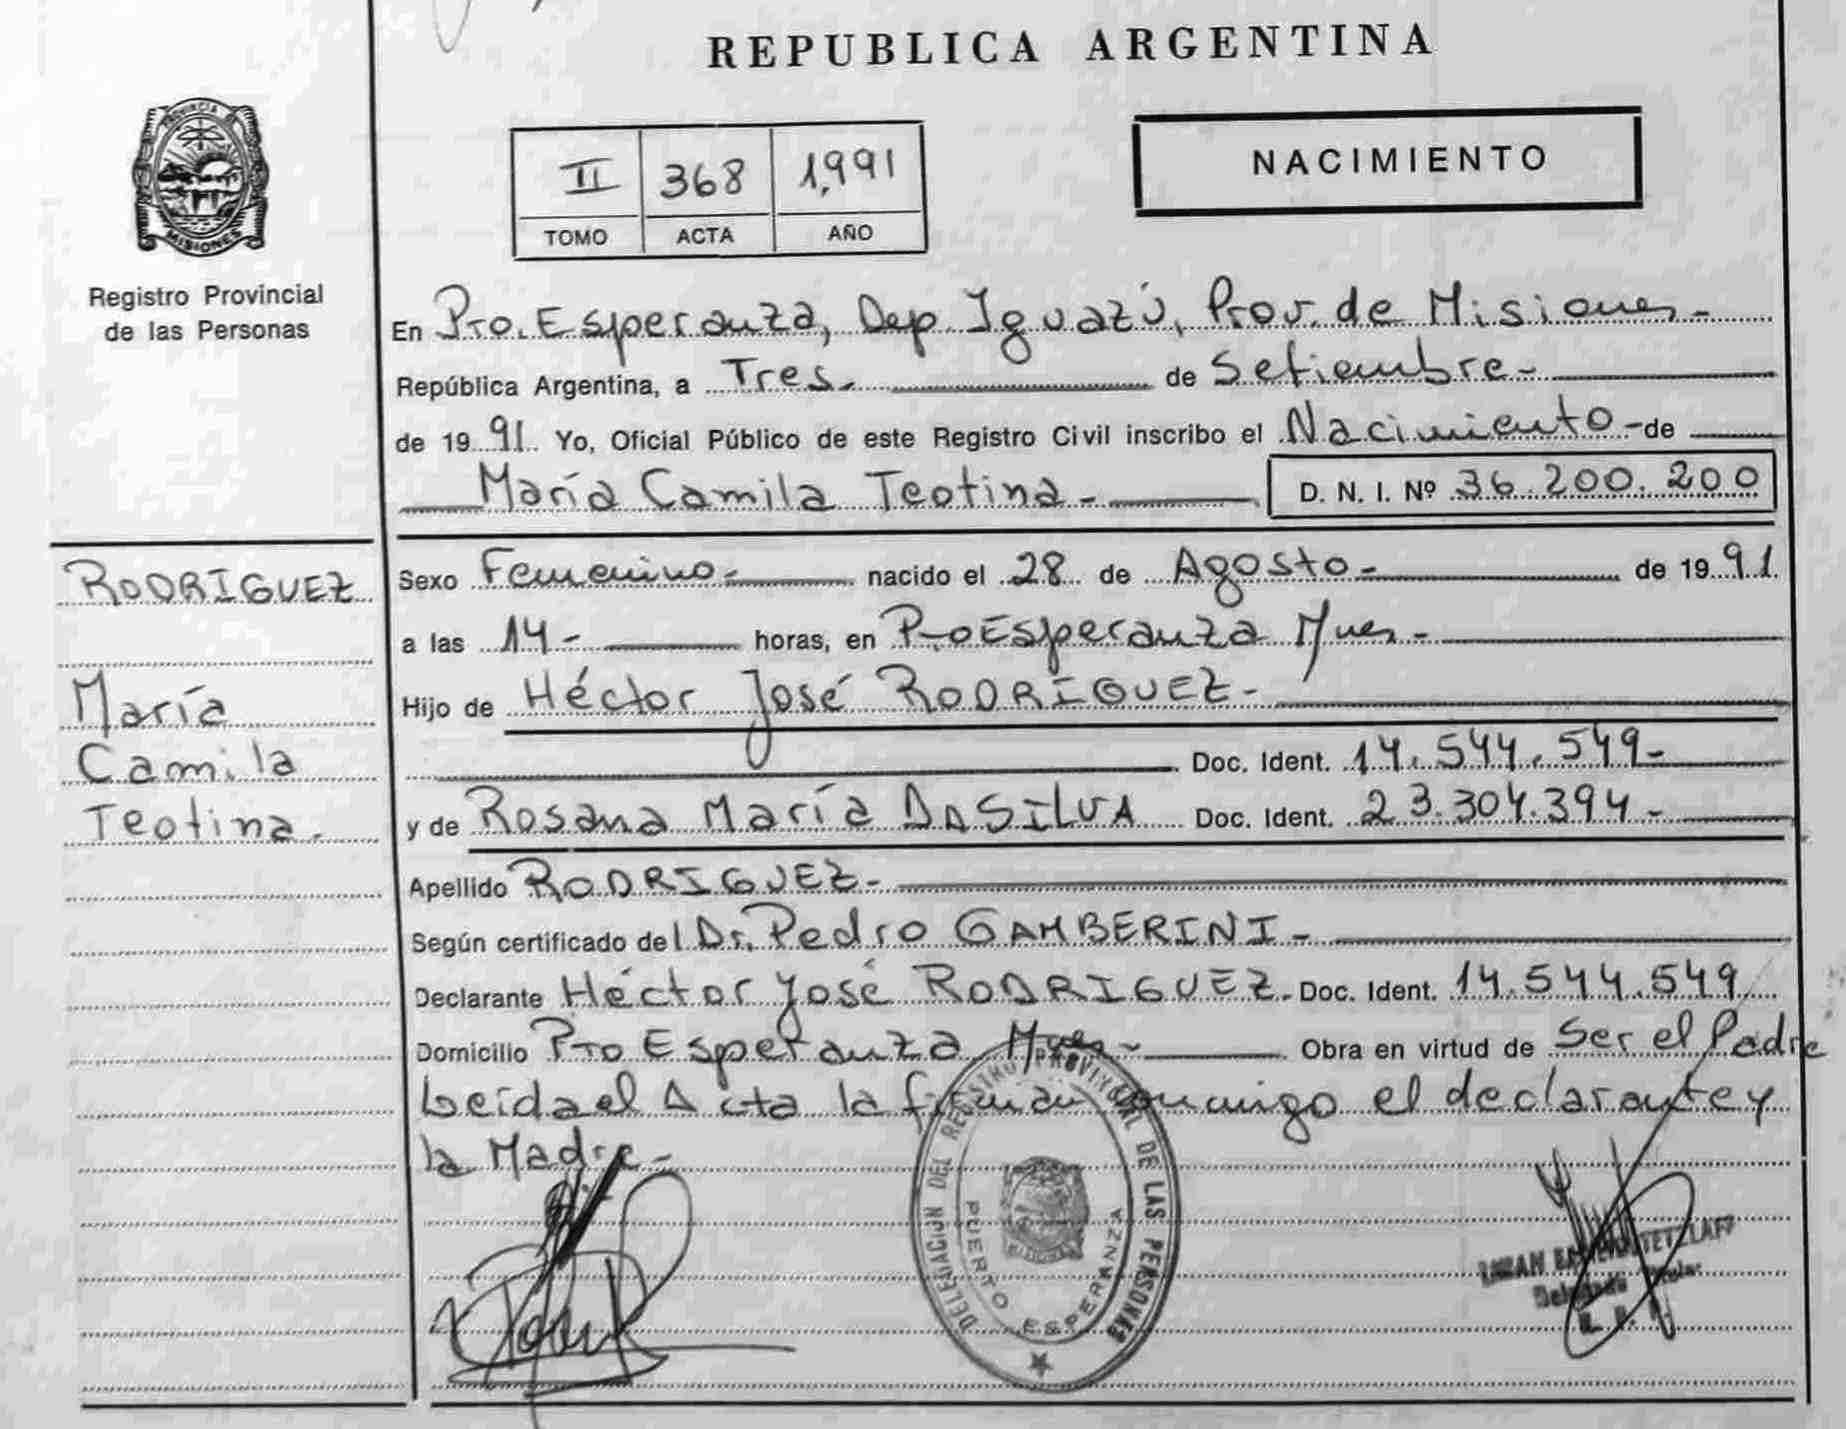 REPUBLICA ARGENTINA
PROVINCIA DE
MISIONES
Registro Provincial
de las Personas
II 368 1,991
TOMO ACTA AÑO
NACIMIENTO
En Pto. Esperanza, Dep. Iguazú, Prov. de Misiones-
República Argentina, a Tres- de Setiembre-
de 19 91 Yo, Oficial Público de este Registro Civil inscribo el Nacimiento-de
María Camila Teotina- D. N. I. Nº 36.200.200
RODRIGUEZ
María
Camila
Teotina.
Sexo Femenino- nacido el 28 de Agosto- de 19 91.
a las 14- horas, en Pto Esperanza Mnes-
Hijo de Héctor José RODRIGUEZ-
Doc. Ident. 14.544.549-
y de Rosana María DASILVA Doc. Ident. 23.304.394-
Apellido RODRIGUEZ-
Según certificado del Dr. Pedro GAMBERINI-
Declarante Héctor José RODRIGUEZ- Doc. Ident. 14.544.549
Domicilio Pto Esperanza Mnes- Obra en virtud de Ser el Padre
Leída el Acta la firman conmigo el declarante y
la Madre-
DELEGACION DEL REGISTRO PROVINCIAL DE LAS PERSONAS
PUERTO ESPERANZA
MISIONES